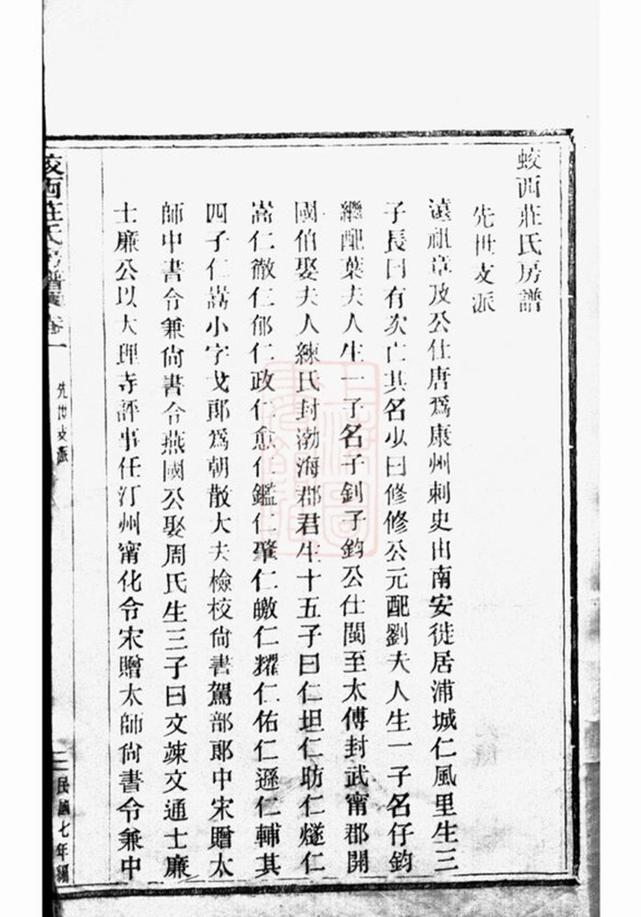 蛟西莊氏房譜
先世支派
遠祖章及公仕唐爲康州刺史由南安徙居浦城仁風里生三
子長曰有次亡其名少曰修修公元配劉夫人生一子名仔鈞
繼配葉夫人生一子名子釗子鈞公仕閩至太傅封武甯郡開
國伯娶夫人練氏封渤海郡君生十五子曰仁坦仁昉仁燧仁
嵩仁徹仁郁仁政仁愈仁鑑仁肇仁皦仁耀仁佑仁遜仁輔其
四子仁嵩小字戈郎爲朝散大夫檢校尙書駕部郎中宋贈太
師中書令兼尙書令燕國公娶周氏生三子曰文竦文通士廉
士廉公以大理寺評事任汀州甯化令宋贈太師尙書令兼中
蛟西莊氏房譜 卷一
先世支派
一
民國七年編